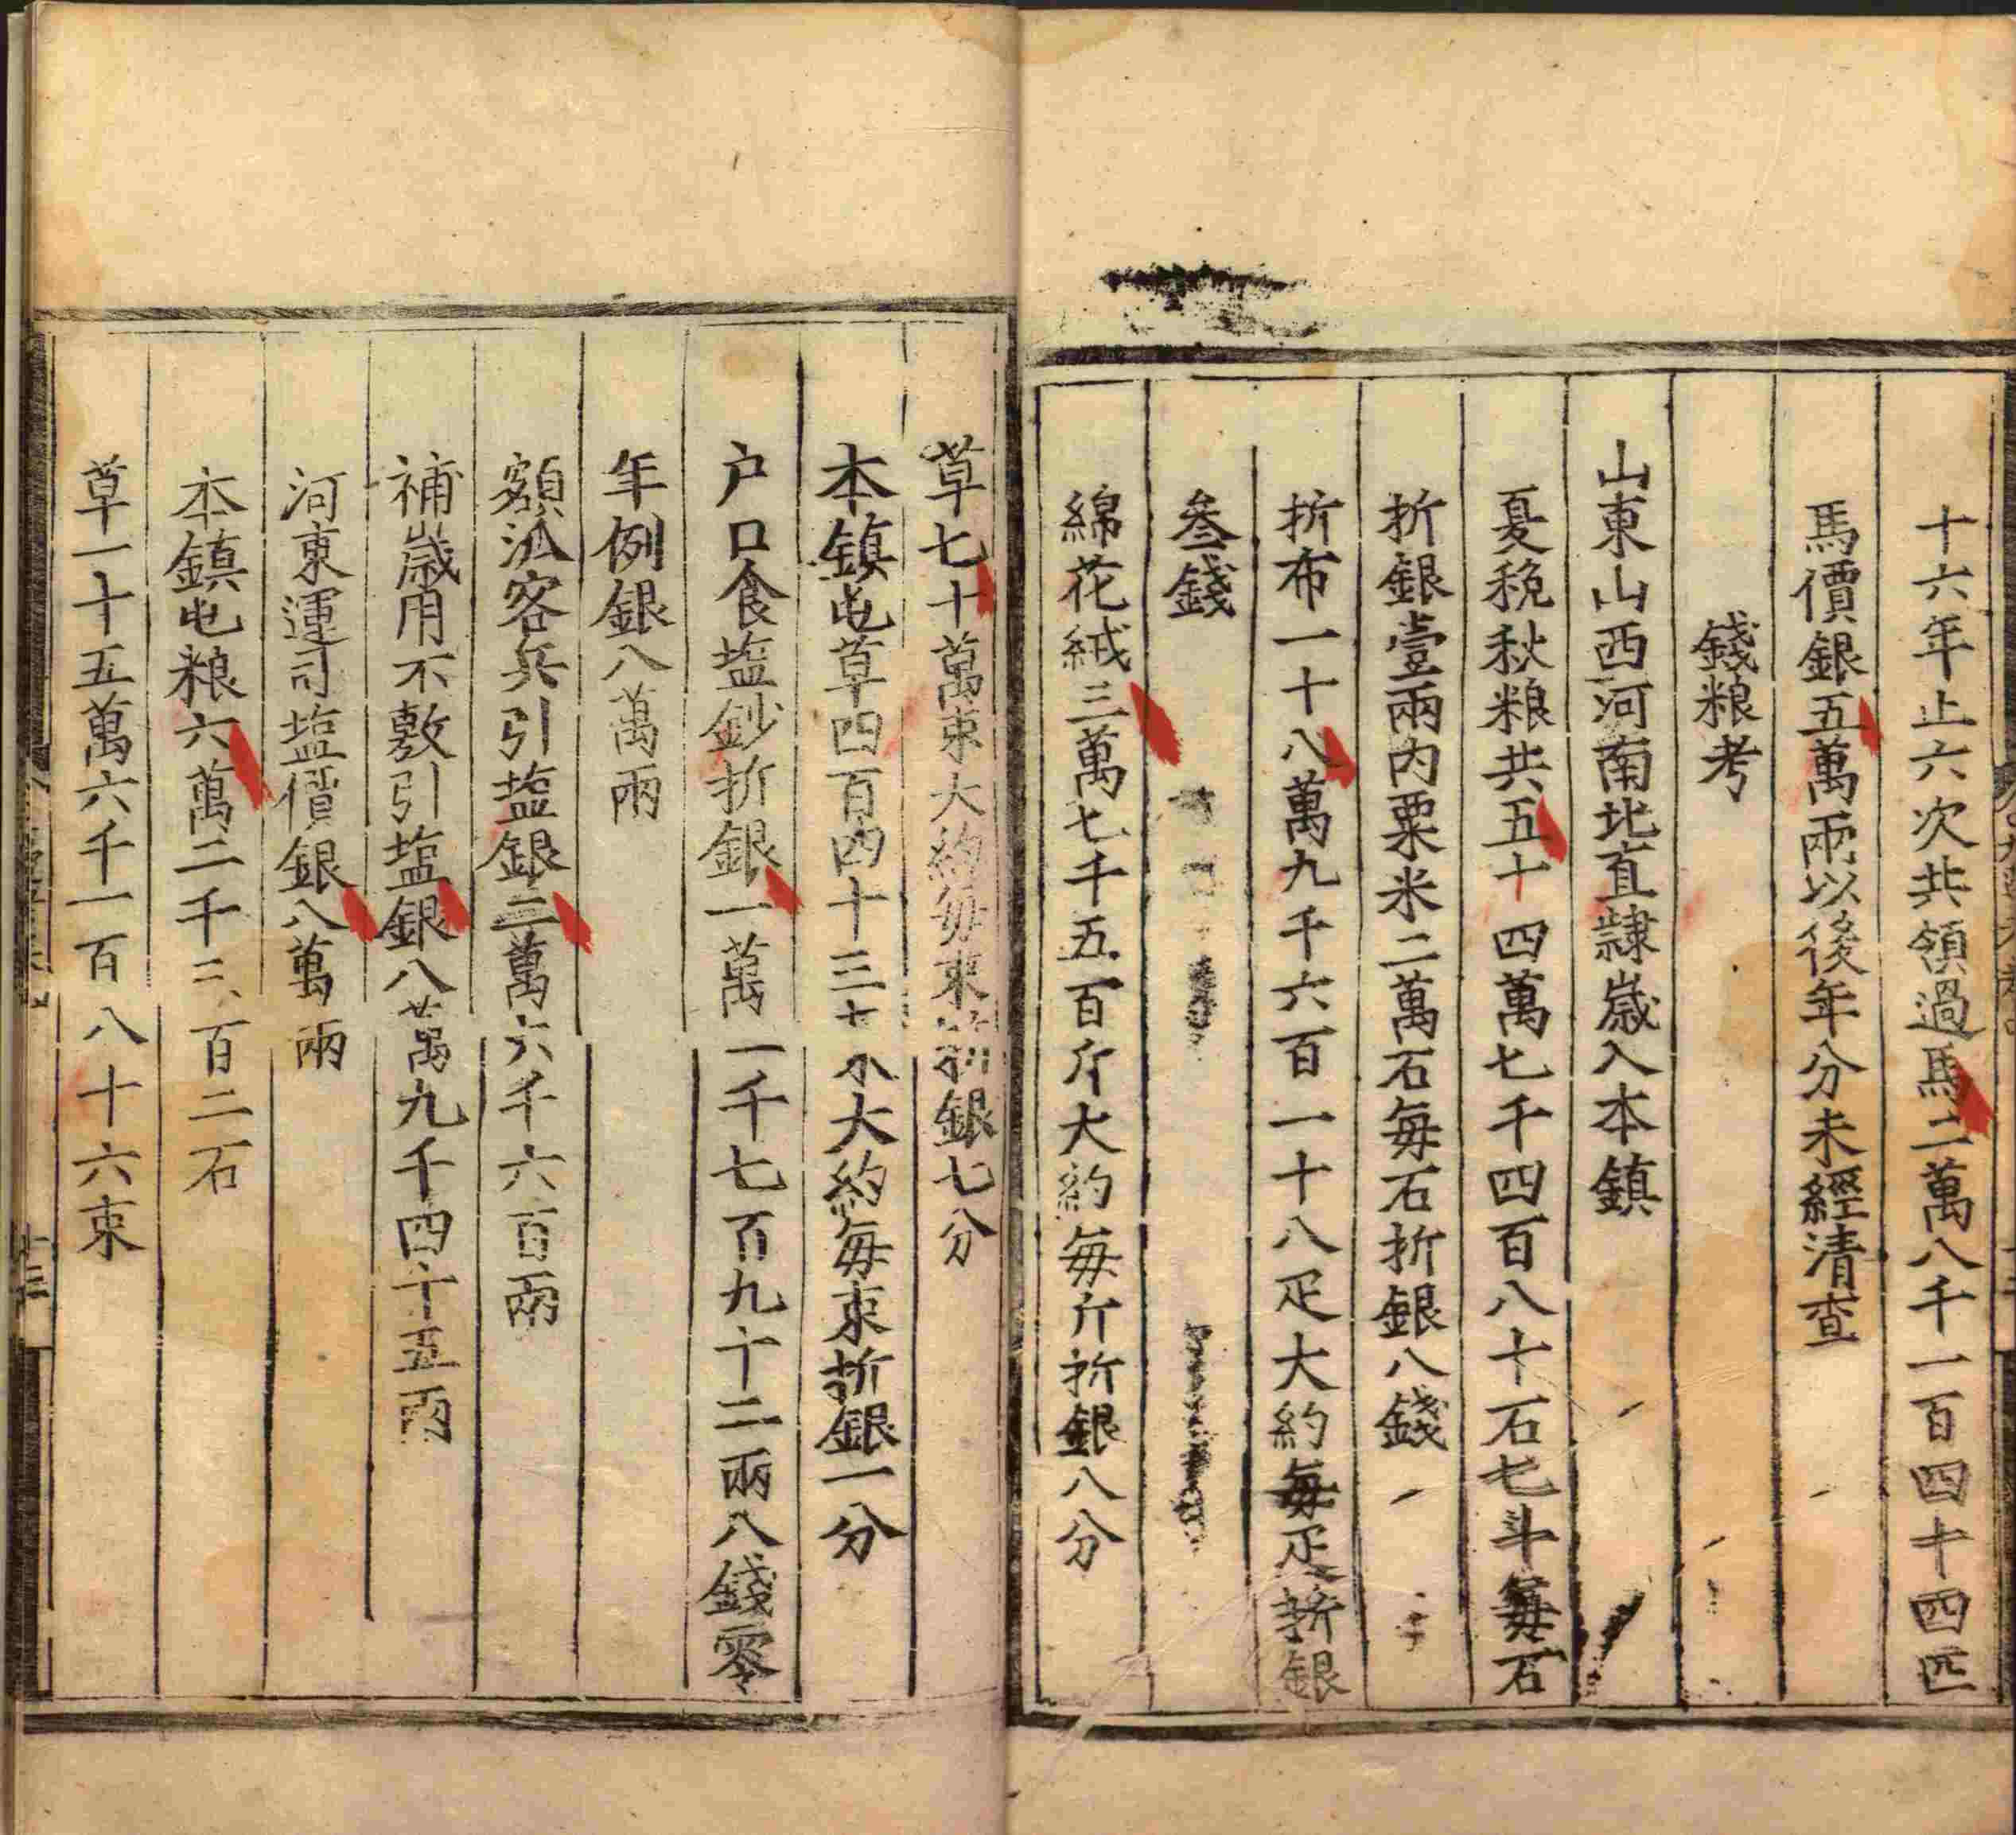 十六年止六次共領過馬二萬八千一百四十四匹
馬價銀五萬兩以後年分未經清查
錢粮考
山東山西河南北直隸歲入本鎮
夏税秋粮共五十四萬七千四百八十石七斗每石
折銀壹兩内粟米二萬石每石折銀八錢
折布一十八萬九千六百一十八疋大約每疋折銀
叁錢
綿花絨三萬七千五百斤大約每斤折銀八分
草七十萬束大約每束折銀七分
本鎮屯草四百四十三大約每束折銀一分
户口食塩鈔折銀一萬一千七百九十二兩八錢零
年例銀八萬兩
額派客兵引塩銀二萬六千六百兩
補歲用不敷引塩銀八萬九千四十五兩
河東運司塩價銀八萬兩
本鎮屯粮六萬二千三百二石
草一十五萬六千一百八十六束
十三